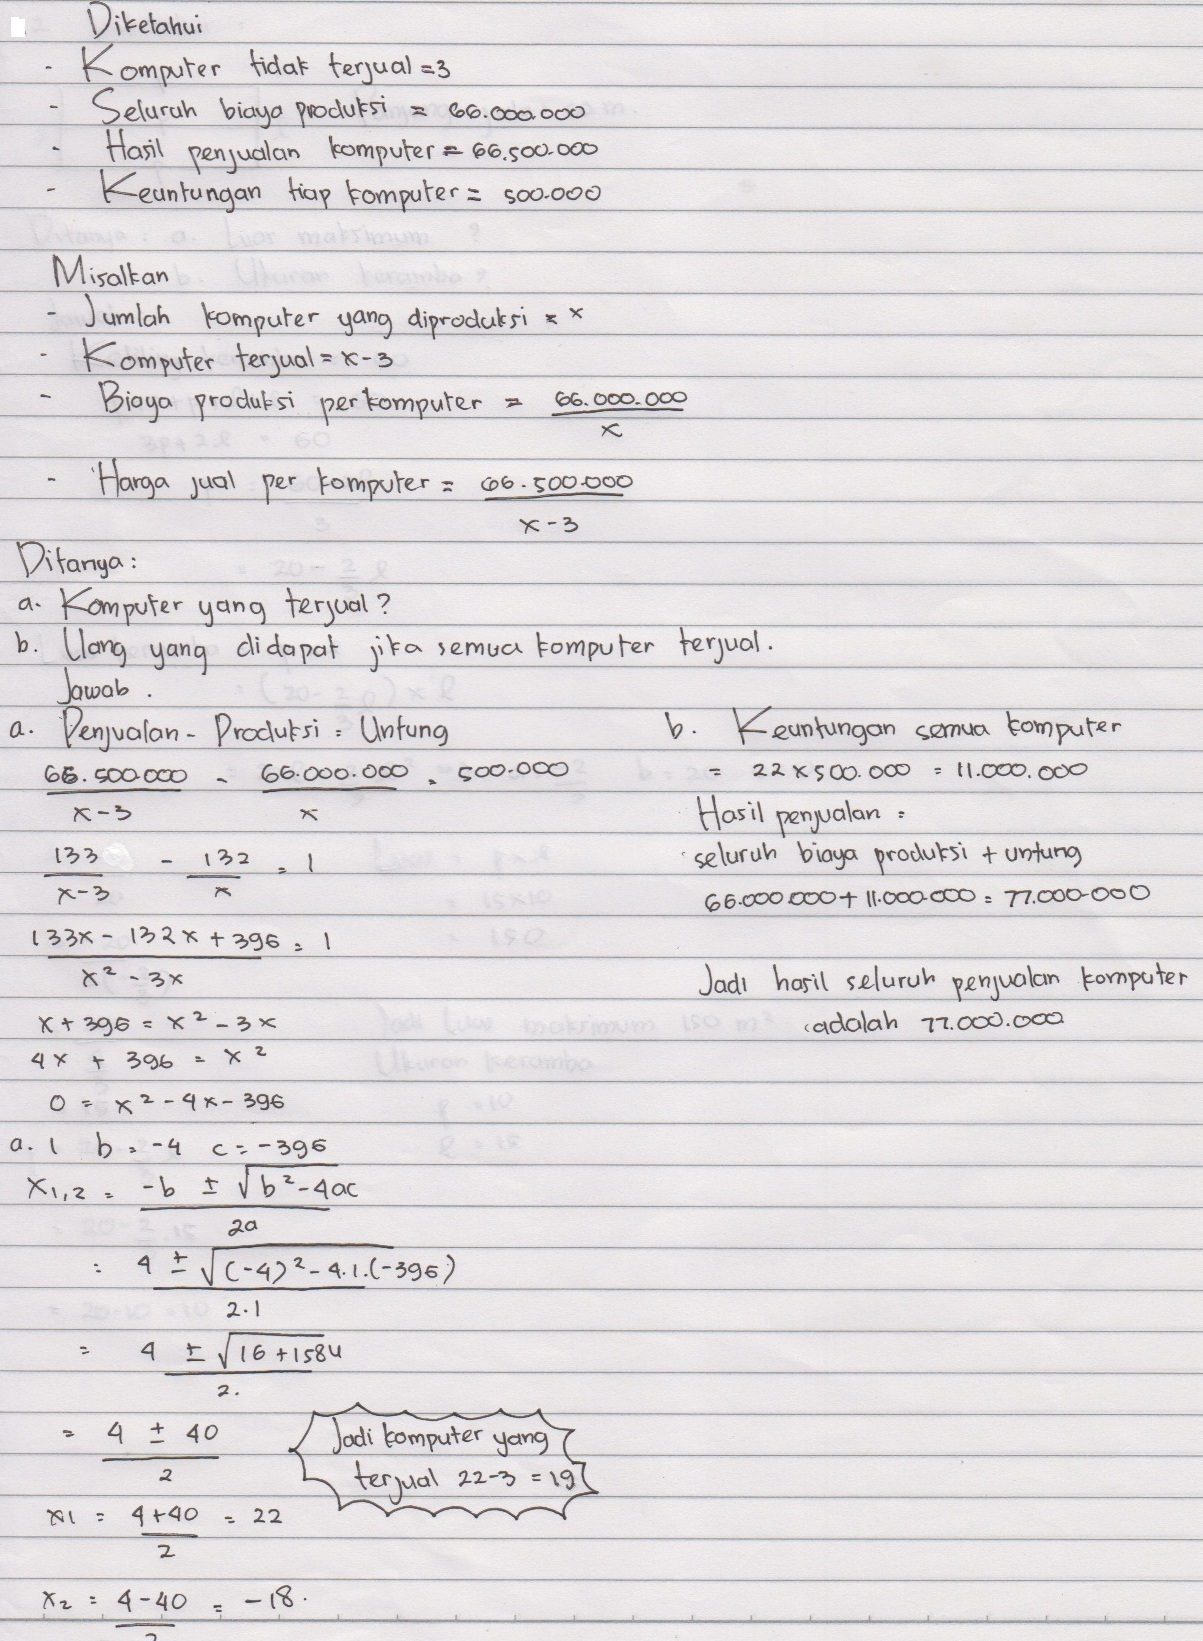 Diketahui
- Komputer tidak terjual = 3
- Seluruh biaya produksi = 66.000.000
- Hasil penjualan komputer = 66.500.000
- Keuntungan tiap komputer = 500.000
Misalkan
- Jumlah komputer yang diproduksi = x
- Komputer terjual = x-3
- Biaya produksi perkomputer = 66.000.000
x
- Harga jual per komputer = 66.500.000
x-3
Ditanya:
a. Komputer yang terjual?
b. Uang yang didapat jika semua komputer terjual.
Jawab.
a. Penjualan - Produksi = Untung
66.500.000 - 66.000.000 = 500.000
x-3 x
133 - 132 = 1
x-3 x
133x - 132x + 396 = 1
x² - 3x
x + 396 = x² - 3x
4x + 396 = x²
0 = x² - 4x - 396
a. 1 b = -4 c = -396
x1,2 = -b ± √b²-4ac
2a
= 4 ± √(-4)² - 4.1.(-396)
2.1
= 4 ± √16 + 1584
2.
= 4 ± 40
2
x1 = 4+40 = 22
2
x2 = 4-40 = -18.
2
Jadi komputer yang
terjual 22-3 = 19
b. Keuntungan semua komputer
= 22 x 500.000 = 11.000.000
Hasil penjualan =
seluruh biaya produksi + untung
66.000.000 + 11.000.000 = 77.000.000
Jadi hasil seluruh penjualan komputer
adalah 77.000.000